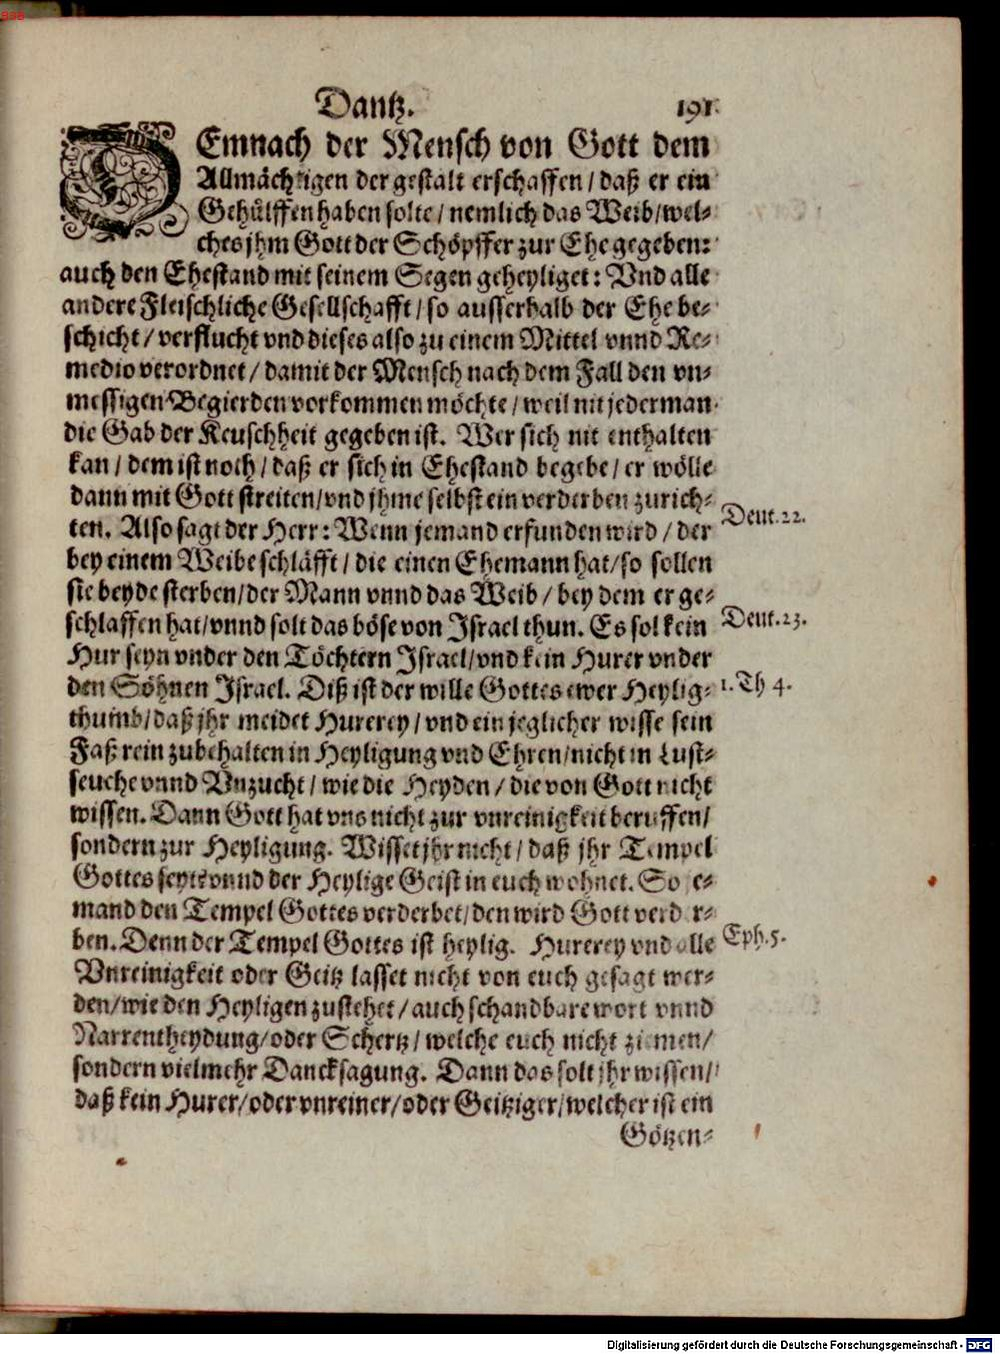 Dantz. 191.
DEmnach der Mensch von Gott dem
Allmächtigen der gestalt erschaffen / daß er ein
Gehülffen haben solte / nemlich das Weib / wel-
ches jhm Gott der Schöpffer zur Ehe gegeben:
auch den Ehestand mit seinem Segen geheyliget: Vnd alle
andere Fleischliche Gesellschafft / so ausserhalb der Ehe be-
schicht / verflucht vnd dieses also zu einem Mittel vnnd Re-
medio verordnet / damit der Mensch nach dem Fall den vn-
messigen Begierden vorkommen möchte / weil nit jederman
die Gab der Keuschheit gegeben ist. Wer sich nit enthalten
kan / dem ist noch / daß er sich in Ehestand begebe / er wölle
dann mit Gott streiten / vnd jhme selbst ein verderben zurich-
ten. Also sagt der Herr: Wenn jemand erfunden wird / der
Deut. 22.
bey einem Weibe schläfft / die einen Ehemann hat / so sollen
sie beyde sterben / der Mann vnnd das Weib / bey dem er ge-
schlaffen hat / vnnd solt das böse von Israel thun. Es sol kein
Deut. 23.
Hur seyn vnder den Töchtern Israel / vnd kein Hurer vnder
den Söhnen Israel. Diß ist der wille Gottes ewer Heylig-
1. Th 4.
thumb / daß jhr meidet Hurerey / vnd ein jeglicher wisse sein
Faß rein zubehalten in Heyligung vnd Ehren / nicht in Lust-
seuche vnnd Vnzucht / wie die Heyden / die von Gott nicht
wissen. Dann Gott hat vns nicht zur vnreinigkeit beruffen /
sondern zur Heyligung. Wisset jhr nicht / daß jhr Tempel
Gottes seyt vnnd der Heylige Geist in euch wohnet. So je-
mand den Tempel Gottes verderbet / den wird Gott verder-
ben. Denn der Tempel Gottes ist heylig. Hurerey vnd alle
Eph. 5.
Vnreinigkeit oder Geitz lasset nicht von euch gesagt wer-
den / wie den Heyligen zustehet / auch schandbare wort vnnd
Narrentheydung / oder Schertz / welche euch nicht ziemen /
sondern vielmehr Dancksagung. Dann das solt jhr wissen /
daß kein Hurer / oder vnreiner / oder Geitziger / welcher ist ein
Götzen-
Digitalisierung gefördert durch die Deutsche Forschungsgemeinschaft - DFG